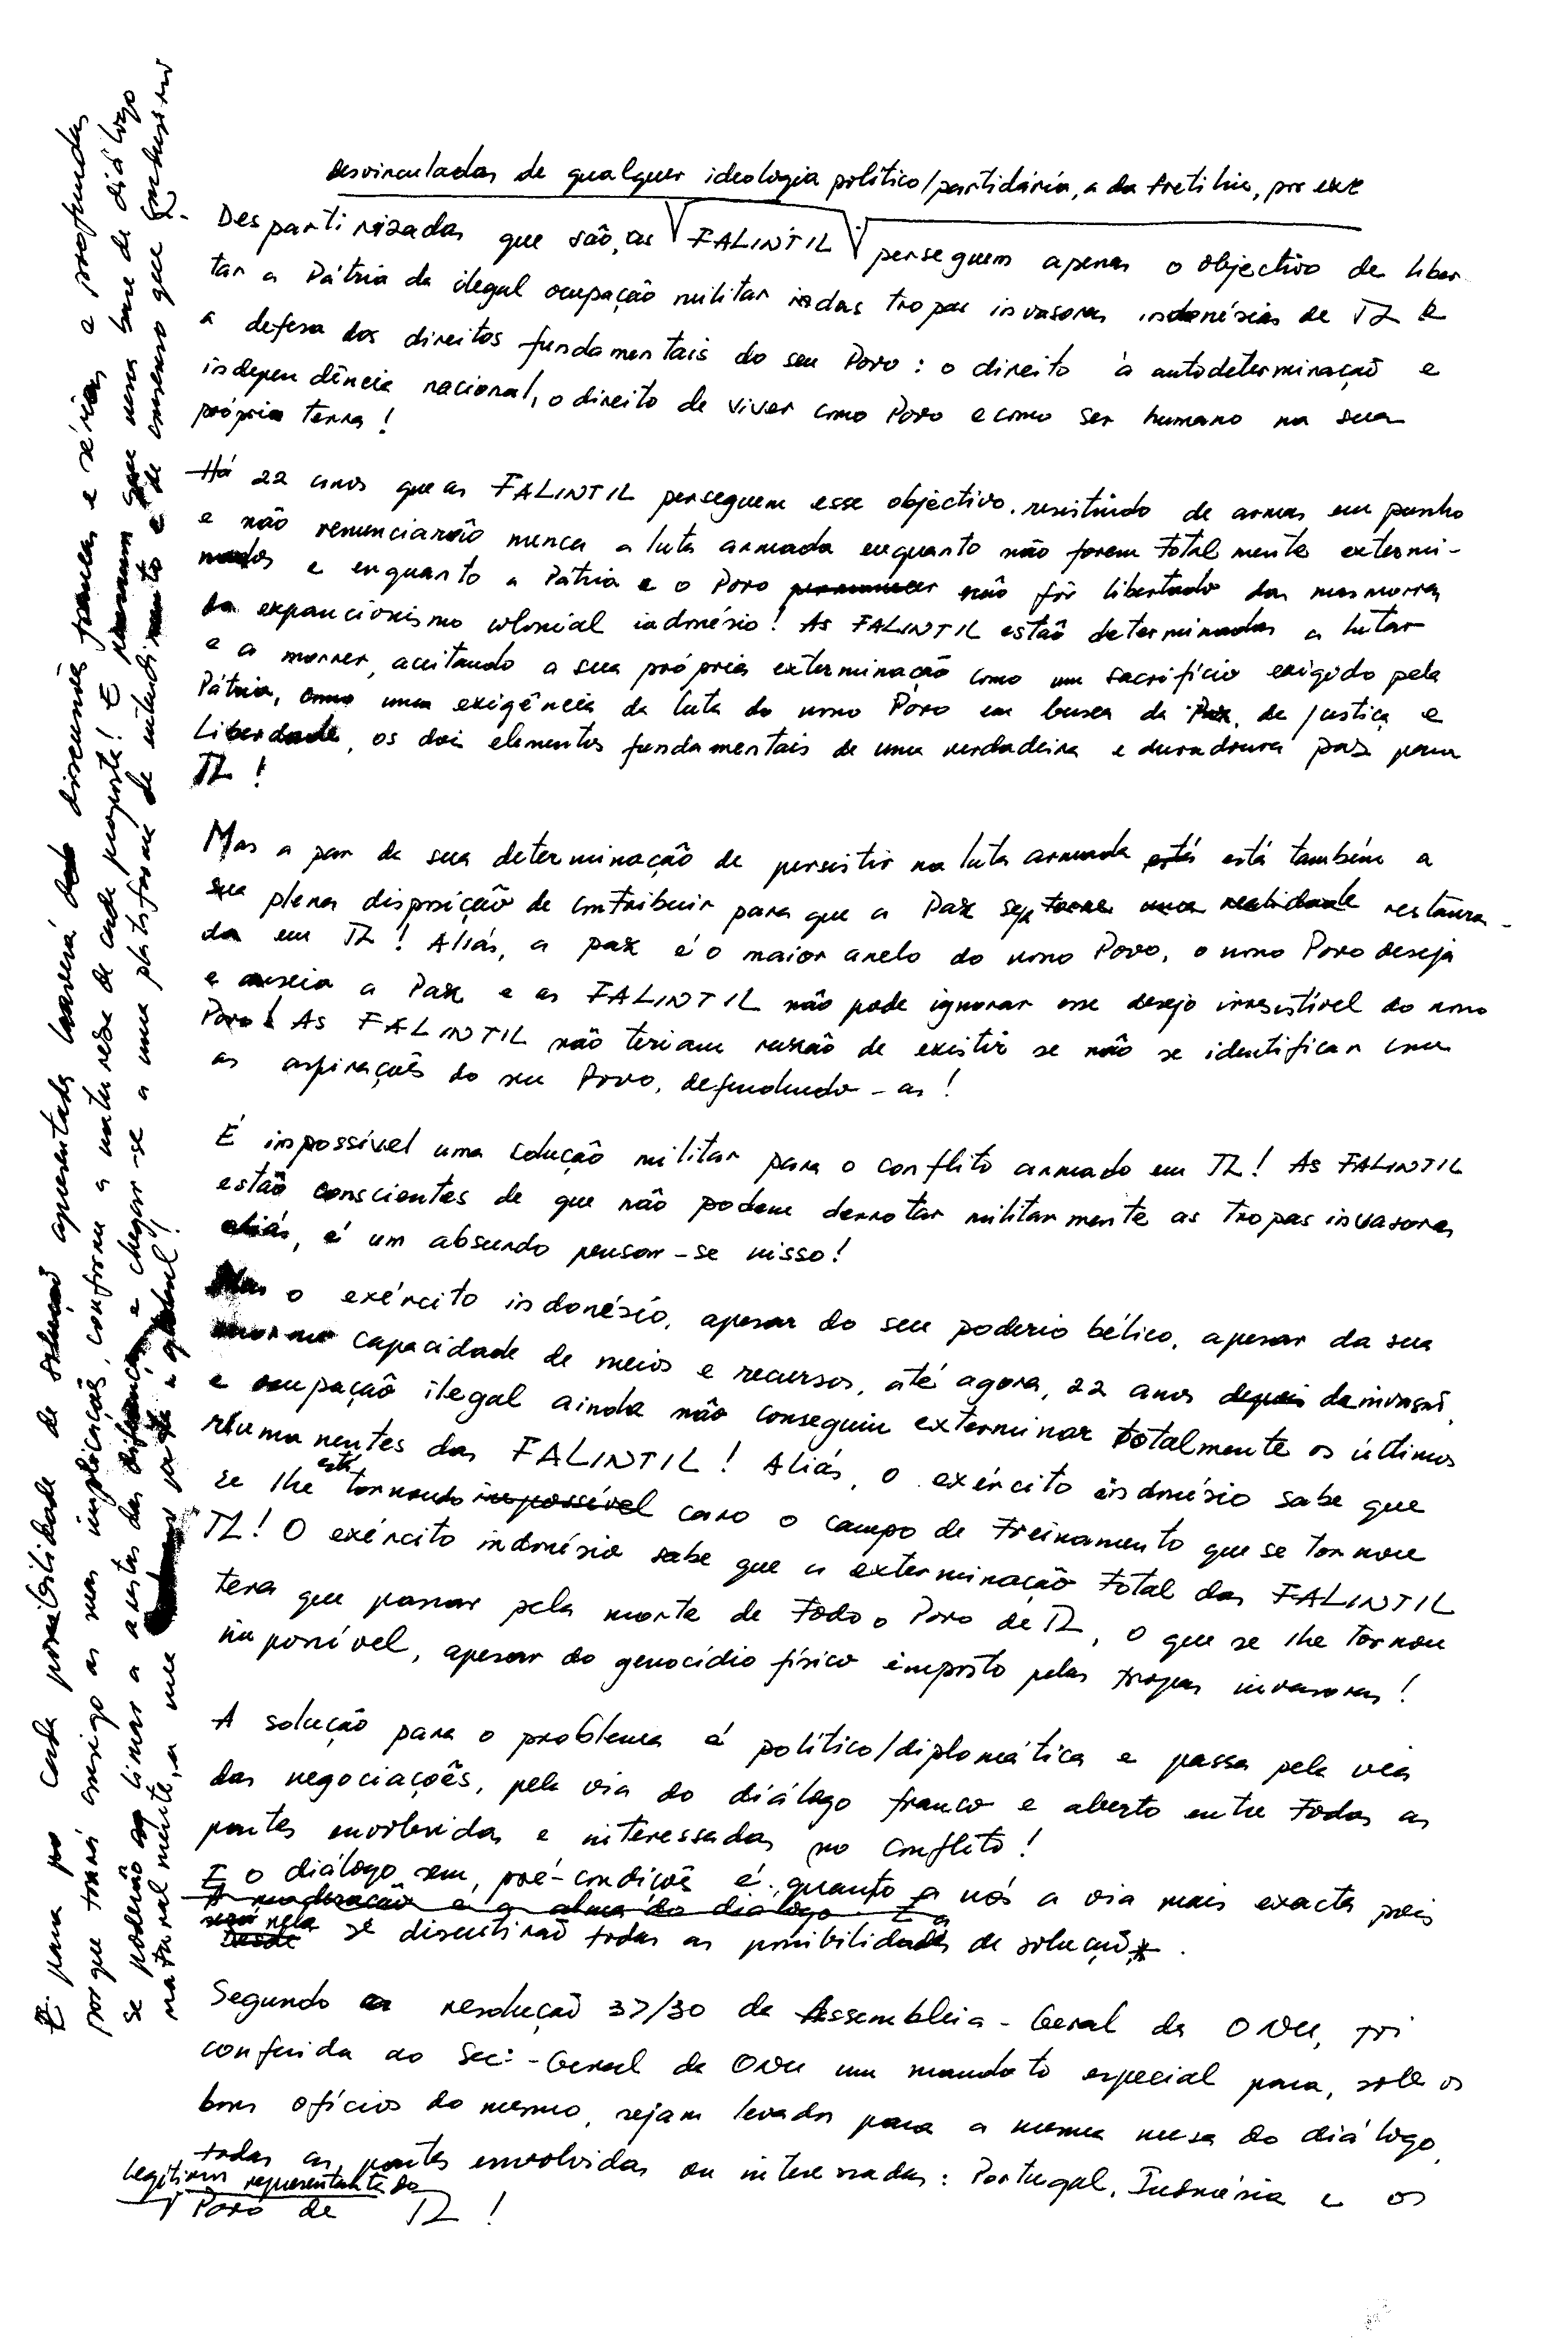 desvinculadas de qualquer ideologia político/partidária, a da Fretilin, por exe
Despartirizadas que são, as FALINTIL perseguem apenas o objectivo de liber
tar a Pátria da ilegal ocupação militar das tropas invasoras indonésias de TL e
a defesa dos direitos fundamentais do seu Povo : o direito à autodeterminação e
independência nacional, o direito de viver como Povo e como ser humano na sua
própria terra !
Há 22 anos que as FALINTIL perseguem esse objectivo, resistindo de armas em punho
e não renunciarão nunca a luta armada enquanto não forem totalmente extermi-
nados e enquanto a Pátria e o Povo permanecer não fôr libertado das masmorras
do expancionismo colonial indonésio ! As FALINTIL estão determinadas a lutar
e a morrer, aceitando a sua própria exterminação como um sacrifício exigido pela
Pátria, como uma exigência da luta do nosso Povo em busca da Paz, de Justiça e
Liberdade, os dois elementos fundamentais de uma verdadeira e duradoura paz para
TL !
Mas a par da sua determinação de persistir na luta armada está está também a
sua plena disposição de contribuir para que a Paz seja torne uma realidade restaura-
da em TL ! Aliás, a paz é o maior anelo do nosso Povo, o nosso Povo deseja
e anseia a Paz e as FALINTIL não pode ignorar esse desejo irresistível do nosso
Povo ! As FALINTIL não teriam razão de existir se não se identificar com
as aspirações do seu Povo, defendendo-as !
É impossível uma solução militar para o conflito armado em TL ! As FALINTIL
estão conscientes de que não podem derrotar militarmente as tropas invasoras
aliás, é um absurdo pensar-se nisso !
Mas o exército indonésio, apesar do seu poderio bélico, apesar da sua
enorme capacidade de meios e recursos, até agora, 22 anos depois da invasão,
e ocupação ilegal ainda não conseguiu exterminar totalmente os últimos
riumanentes das FALINTIL ! Aliás, o exército indonésio sabe que
está
se lhe tornando impossível caro o campo de treinamento que se tornou
TL ! O exército indonésio sabe que a exterminação total das FALINTIL
tera que passar pela morte de todo o Povo de TL, o que se lhe tornou
impossível, apesar do genocídio físico imposto pelas tropas invasoras !
A solução para o problema é político/diplomática e passa pela via
das negociações, pela via do diálogo franco e aberto entre todas as
partes envolvidas e interessadas no conflito !
E o diálogo sem pré-condições é, quanto a nós a via mais exacta pois
A moderação é a alma do diálogo. E a
será nela
Desde se discutirão todas as possibilidades de solução *.
Segundo a resolução 37/30 da Assembleia-Geral da ONU, foi
conferida ao Sec:-Geral da ONU um mandato especial para, sob os
bons ofícios do mesmo, sejam levados para a mesma mesa do diálogo,
todas as partes envolvidas ou interessadas : Portugal, Indonésia e os
legítimos representante do
Povo de TL !
E para cada possibilidade de solução apresentada haverá discussões francas e sérias e profundas
porque trará consigo as suas implicações, conforme a natureza de cada proposta ! E nessa base de diálogo
se poderão limar a arestas das diferenças e chegar-se a uma plataforma de entendimento e de consenso que conduziria
naturalmente, a uma paz global !